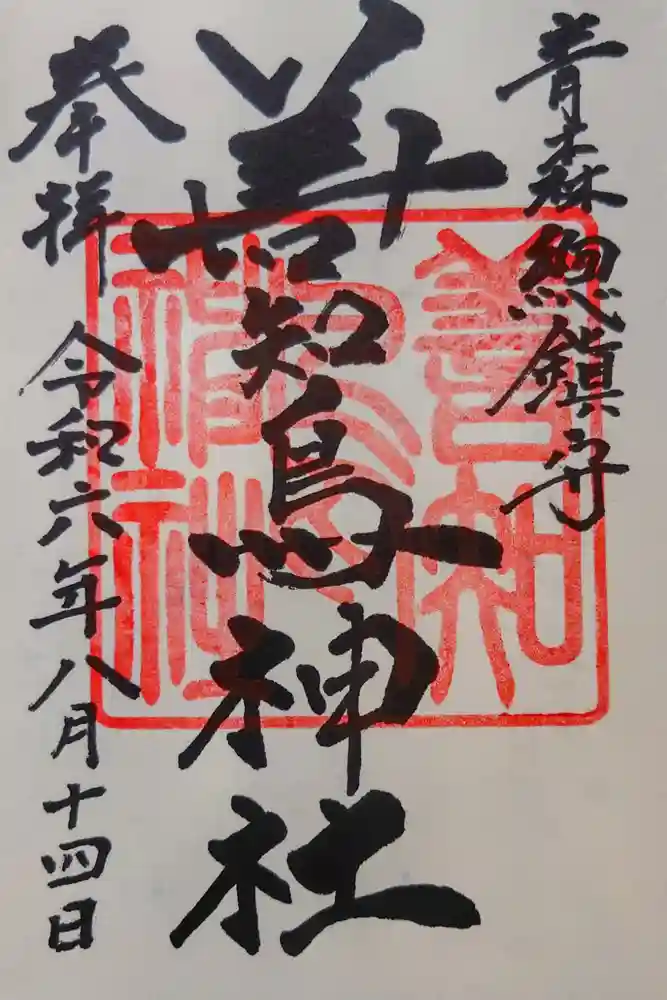 青森總鎮守
善知鳥神社
奉拝　令和六年八月十四日
善知鳥神社